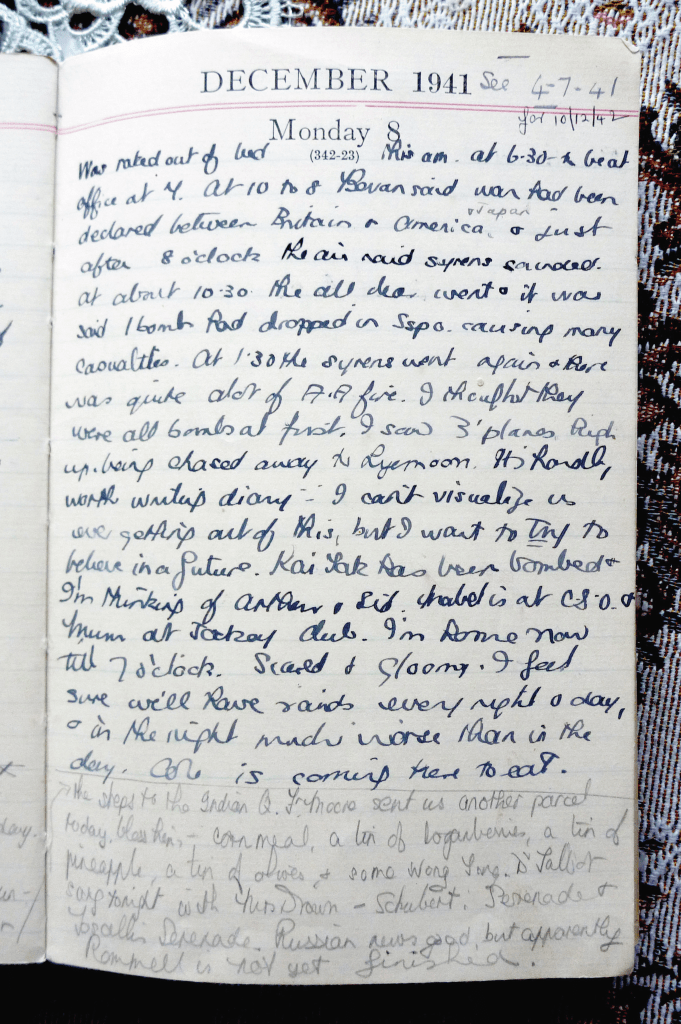 DECEMBER 1941 See 4-7-41
for 10/12/42
Monday 8
(342-23)
Was raked out of bed this am. at 6.30 to be at
office at 7. At 10 to 8 Bevan said war had been
declared between Britain & America & Japan, & just
after 8 o'clock the air raid syrens sounded.
at about 10.30 the all clear went & it was
said 1 bomb had dropped in Sspo. causing many
casualties. At 1.30 the syrens went again & there
was quite alot of A.A fire. I thought they
were all bombs at first. I saw 3 'planes high
up. being chased away to Lyemoon. It's hardly
worth writing diary - I can't visualize us
ever getting out of this, but I want to try to
believe in a future. Kai Tak has been bombed &
I'm thinking of Arthur & Sid. Mabel is at C.S.O. &
Mum at Jockey Club. I'm home now
till 7 o'clock. Scared & gloomy. I feel
sure we'll have raids every night & day,
& in the night much worse than in the
day. is coming here to eat.
the steps to the Indian Q. Fr. Moore sent us another parcel
today, bless him - cornmeal, a tin of loganberries, a tin of
pineapple, a tin of olives, & some Wong Tong. Dr Talbot
sang tonight with Mrs Drown - Schubert's Serenade &
Toselli's Serenade. Russian news good but apparently
Rommell is not yet finished.